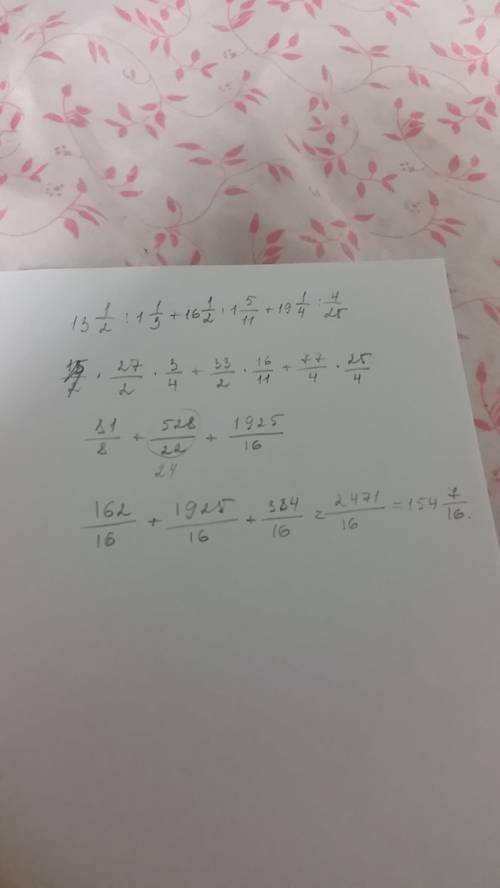 13 1/2 : 1 1/3 + 16 1/2 · 1 5/11 + 19 1/4 : 4/25
27/2 · 3/4 + 33/2 · 16/11 + 77/4 · 25/4
81/8 + 528/22 + 1925/16
24
162/16 + 1925/16 + 384/16 = 2471/16 = 154 7/16.